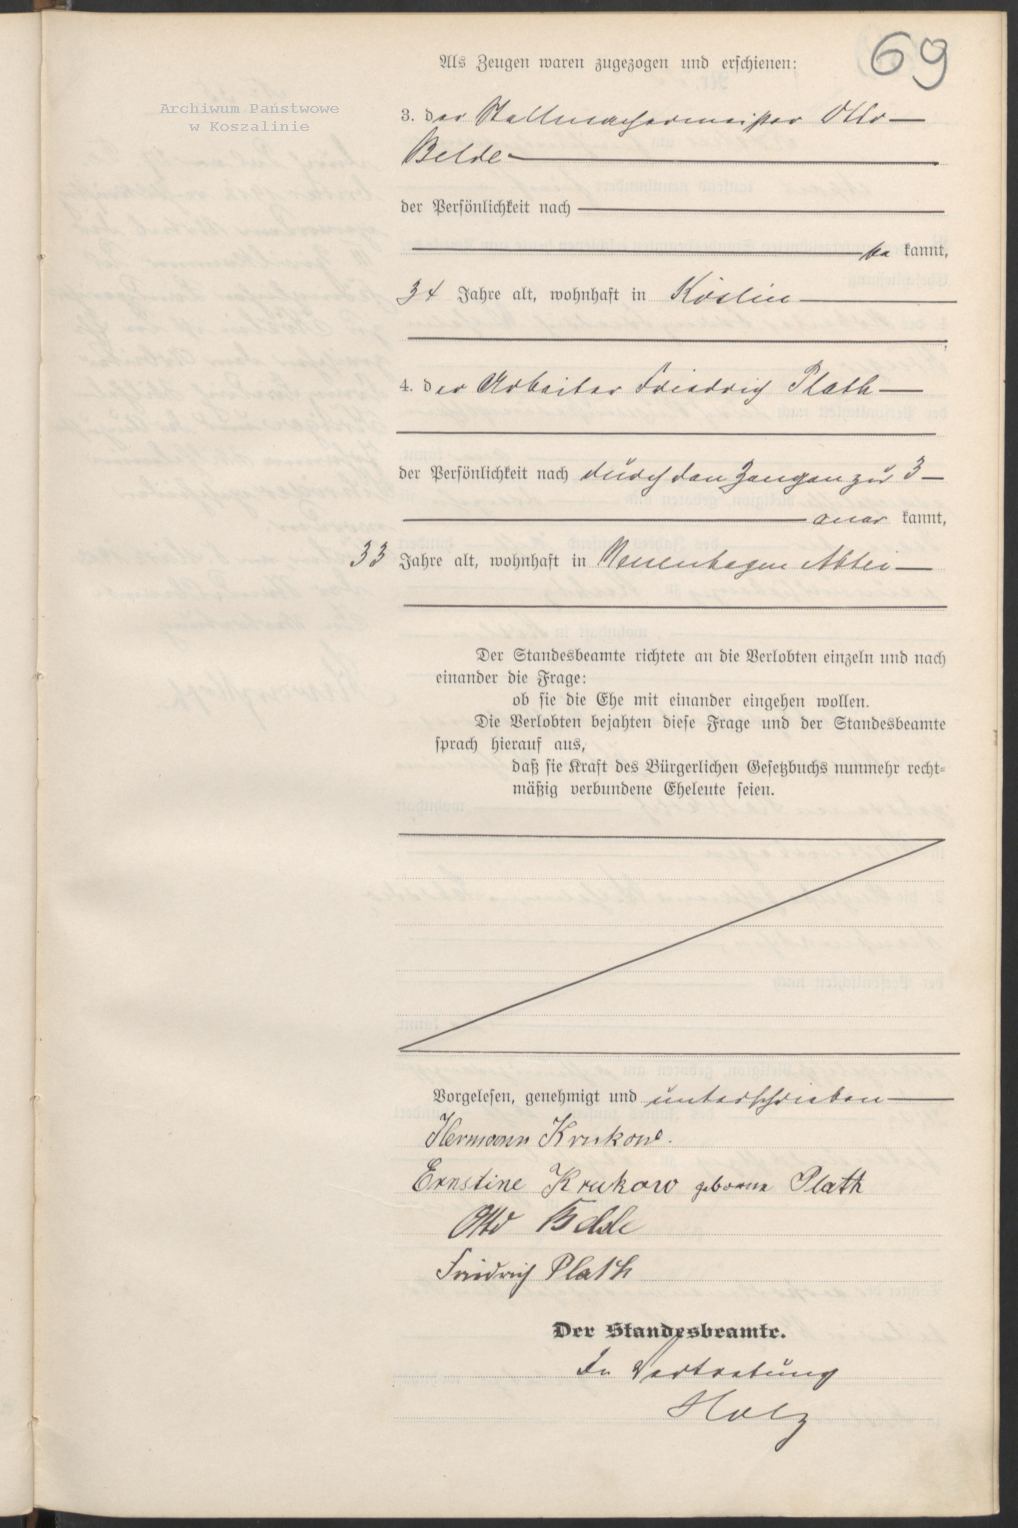 69
Archiwum Państwowe
w Koszalinie
Als Zeugen waren zugezogen und erschienen:
3. der Stellmachermeister Otto
Belde
der Persönlichkeit nach
be kannt,
34 Jahre alt, wohnhaft in Köslin
;
4. der Arbeiter Friedrich Plath
der Persönlichkeit nach durch den Zeugen zu 3
aner kannt,
33 Jahre alt, wohnhaft in Neuenhagen Abtei
Der Standesbeamte richtete an die Verlobten einzeln und nach
einander die Frage:
ob sie die Ehe mit einander eingehen wollen.
Die Verlobten bejahten diese Frage und der Standesbeamte
sprach hierauf aus,
daß sie kraft des Bürgerlichen Gesetzbuchs nunmehr recht-
mäßig verbundene Eheleute seien.
Vorgelesen, genehmigt und unterschrieben
Hermann Krukow.
Ernstine Krukow geborene Plath
Otto Belde
Friedrich Plath
Der Standesbeamte.
In Vertretung
Holz